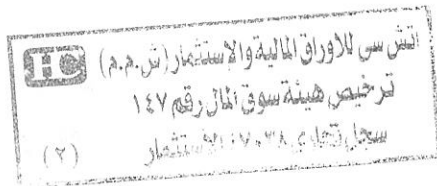 اتش سى للأوراق المالية والإستثمار (ش.م.م) HC
ترخيص هيئة سوق المال رقم ١٤٧
سجل تجارى الإستثمار (٢)